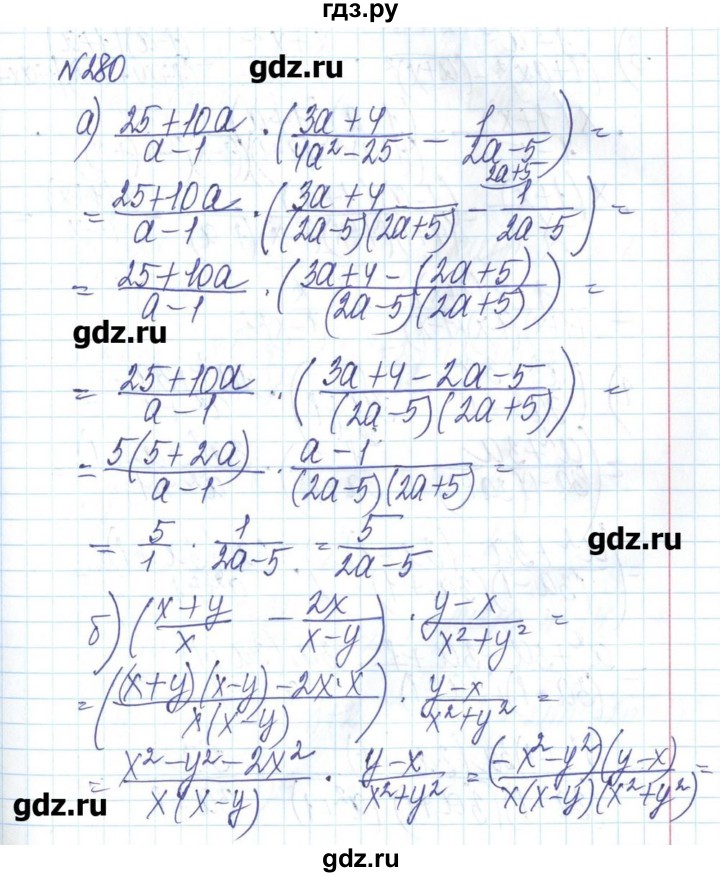 гдз.ру
№280
gdz.ru
а) (25+10a)/(a-1) · ((3a+4)/(4a²-25) - 1/(2a-5)) =
2a+5
= (25+10a)/(a-1) · ((3a+4)/((2a-5)(2a+5)) - 1/(2a-5)) =
= (25+10a)/(a-1) · ((3a+4-(2a+5))/((2a-5)(2a+5))) =
gdz.ru
= (25+10a)/(a-1) · ((3a+4-2a-5)/((2a-5)(2a+5))) =
= 5(5+2a)/(a-1) · (a-1)/((2a-5)(2a+5)) =
gdz.ru
= 5/1 · 1/(2a-5) = 5/(2a-5)
б) ((x+y)/x - 2x/(x-y)) · (y-x)/(x²+y²) =
= (((x+y)(x-y)-2x·x)/(x(x-y))) · (y-x)/(x²+y²) =
= (x²-y²-2x²)/(x(x-y)) · (y-x)/(x²+y²) = (-x²-y²)(y-x)/(x(x-y)(x²+y²)) =
gdz.ru
gdz.ru